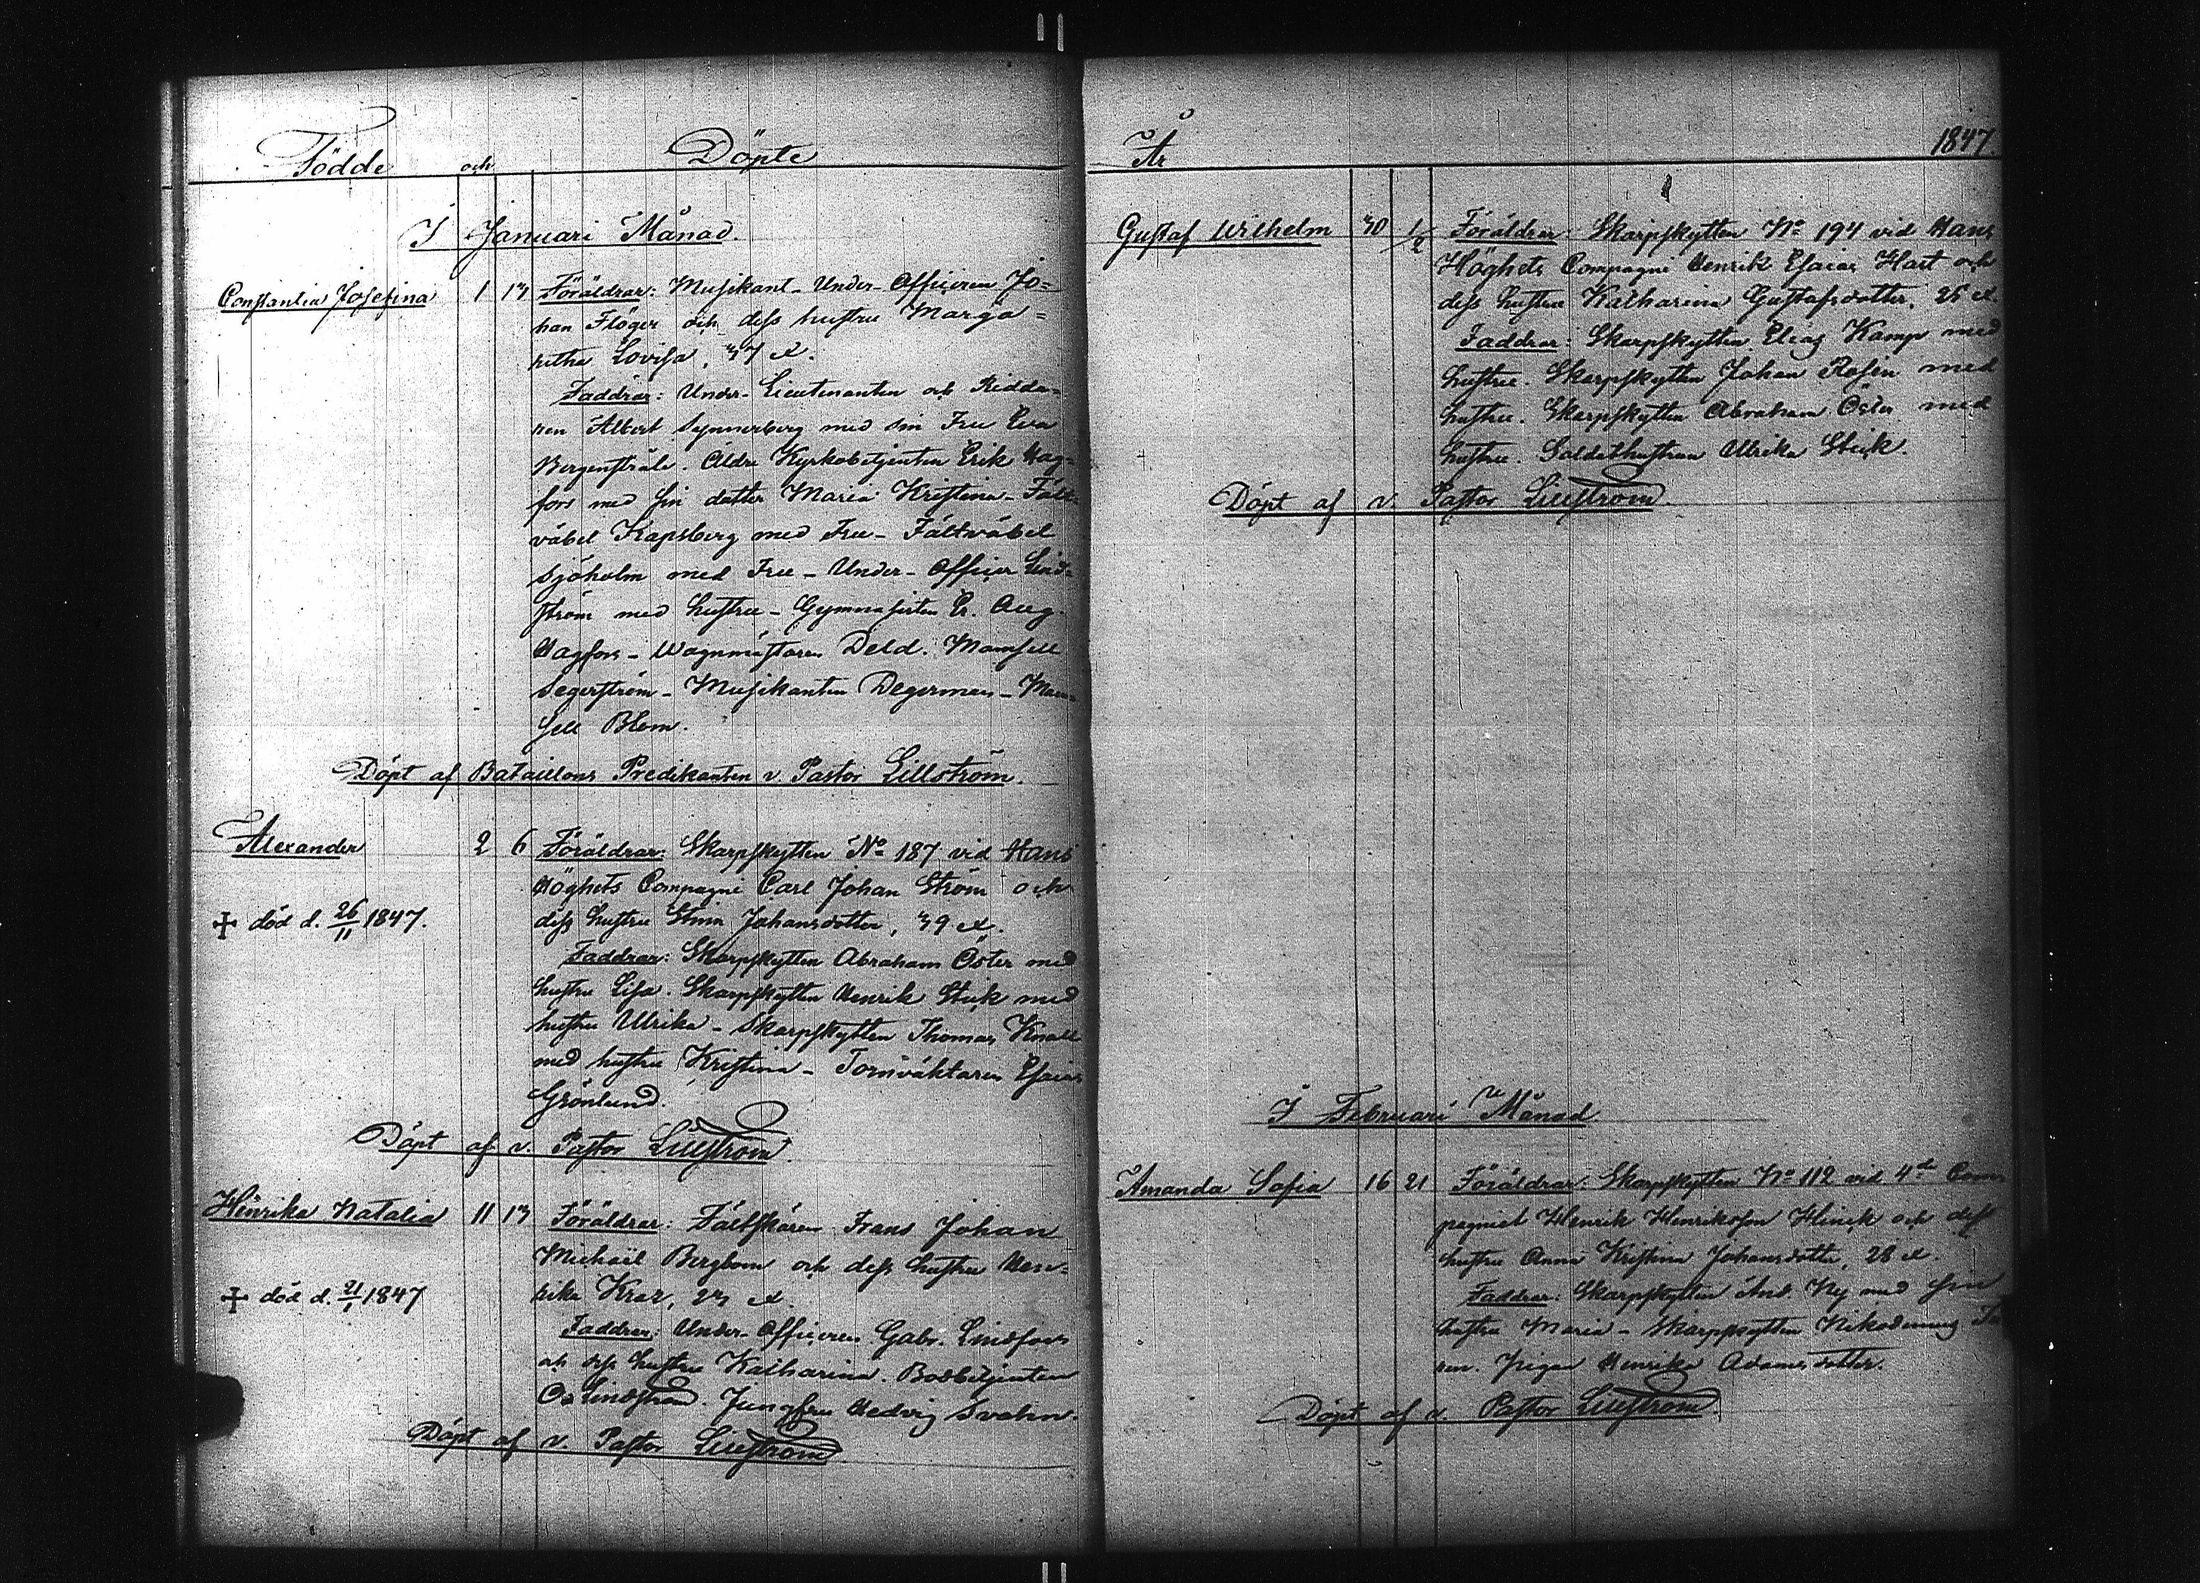 Födde och Döpte
I Januari Månad.
Constantia Josefina 1 13 Föräldrar: Musikant-Under-Officeren Jo=
han Flöger och dess hustru Marga=
retha Lovisa, 37 år.
Faddrar: Under-Lieutenanten och Ridda=
ren Albert Synnerberg med sin Fru Eva
Bergenstråle. Äldre Kyrkobetjenten Erik Hag=
fors med sin dotter Maria Kristina - Fält=
väbel Kapsberg med Fru - Fältväbel
Sjöholm med Fru - Under-Officer Lind=
ström med hustru - Gymnasisten Er. Aug.
Hagfors - Wagnmästaren Deld. Mamsell
Segerström - Musikanten Degerman - Mam=
sell Blom.
Döpt af Bataillons Predikanten v. Pastor Lillström.
Alexander 2 6 Föräldrar: Skarpskytten No 187 vid Hans
Höghets Compagni Carl Johan Ström och
† död d. 26/11 1847. dess hustru Stina Johansdotter, 39 år.
Faddrar: Skarpskytten Abraham Öster med
hustru Lisa. Skarpskytten Henrik Stick med
hustru Ulrika - Skarpskytten Thomas Knall
med hustru Kristina - Tornväktaren Esaias
Grönlund.
Döpt af v. Pastor Lillström.
Henrika Natalia 11 13 Föräldrar: Fältskären Frans Johan
Michaël Bergbom och dess hustru Hen=
† död d. 21/1 1847 rika Kraz, 23 år.
Faddrar: Under-Officeren Gabr. Lindfors
och dess hustru Katharina. Bodbetjenten
Lindström. Jungfru Hedvig Svahn.
Döpt af v. Pastor Lillström
År 1847
Gustaf Wilhelm 30 1/2 Föräldrar: Skarpskytten No 194 vid Hans
Höghets Compagni Henrik Esaias Hast och
dess hustru Katharina Gustafsdotter, 25 år.
Faddrar: Skarpskytten Elias Kamp med
hustru. Skarpskytten Johan Rosin med
hustru. Skarpskytten Abraham Öster med
hustru. Soldathustrun Ulrika Stick.
Döpt af v. Pastor Lillström.
I Februari Månad
Amanda Sofia 16 21 Föräldrar: Skarpskytten No 112 vid 4de Com
pagniet Henrik Henriksson Hinck och dess
hustru Anna Kristina Johansdotter, 28 år.
Faddrar: Skarpskytten And. Ny med sin
hustru Maria - Skarpskytten Nikodemus
ren. Pigan Henrika Adamsdotter.
Döpt af v. Pastor Lillström.